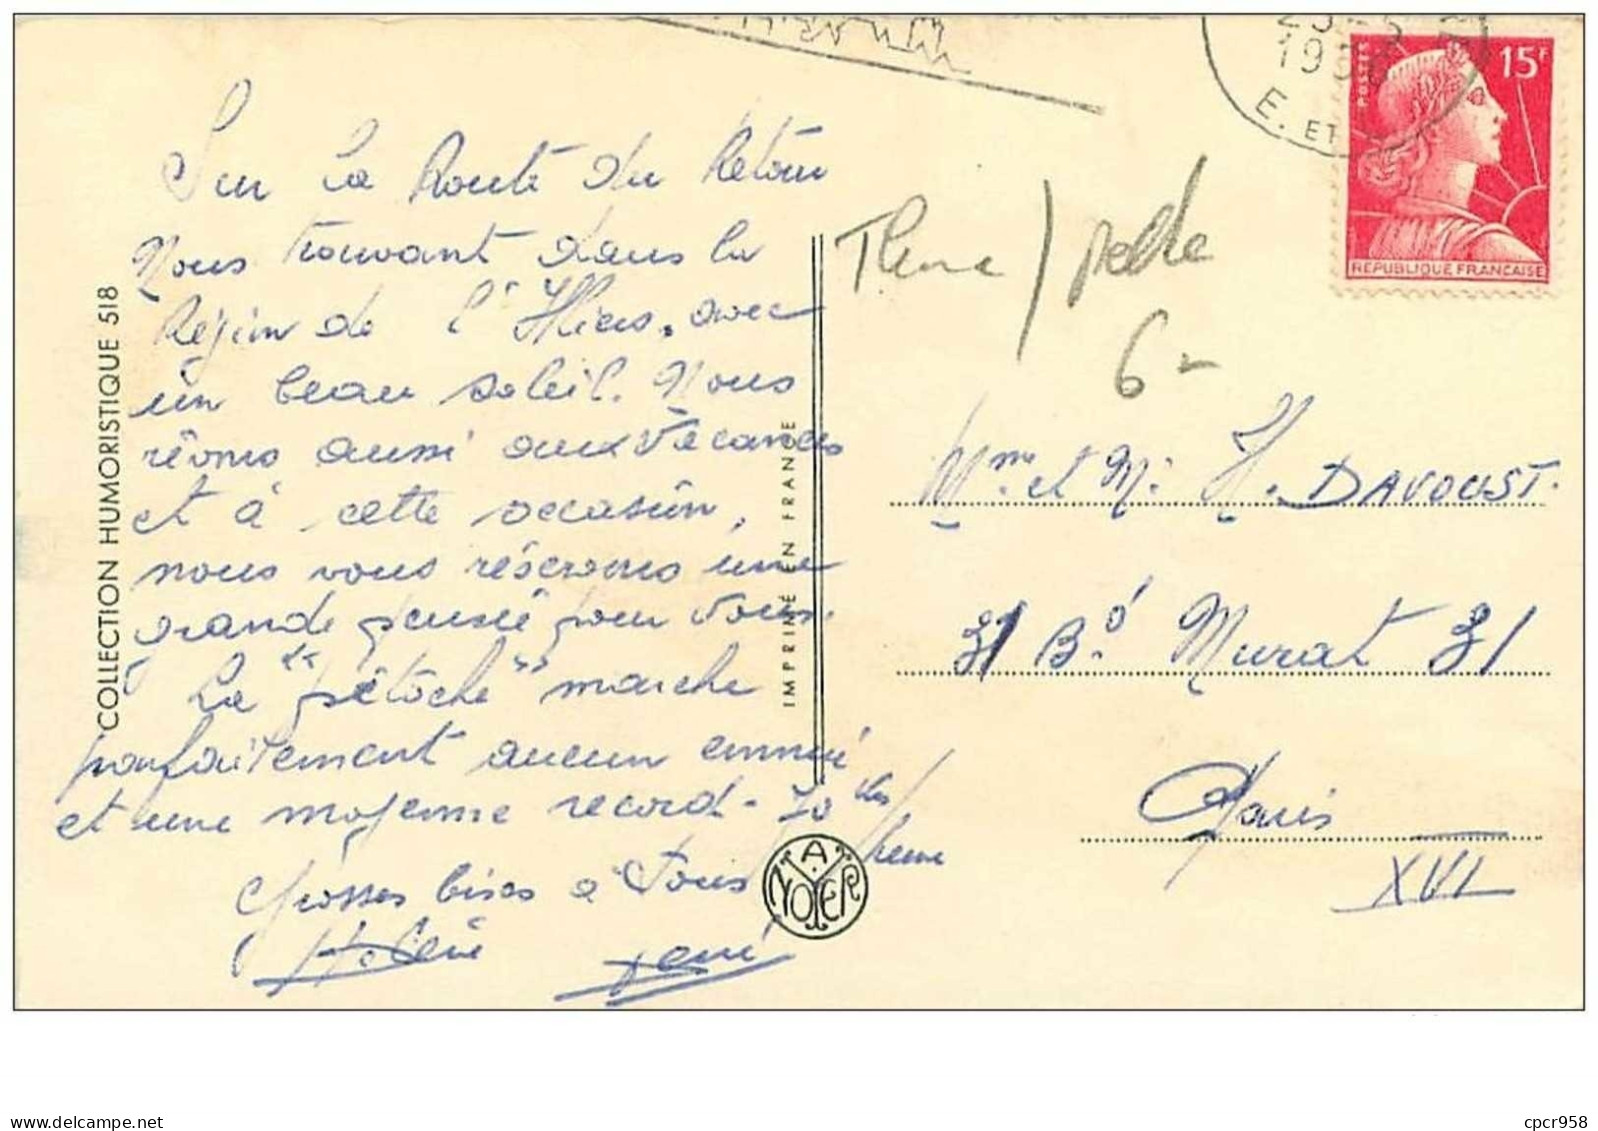 COLLECTION HUMORISTIQUE 518
Sur la Route du Retour
Nous trouvant dans la
Région de l', avec
un beau soleil. Nous
rêvons aussi aux Vacances
et à cette occasion,
nous vous réservons une
grande pensée pour vous.
La "pétoche" marche
parfaitement aucun ennui
et une moyenne record - 70
Grosses bises à Tous
Hélène
René
IMPRIMÉ EN FRANCE
A. NOYER
1958
E. ET
POSTES
15F
REPUBLIQUE FRANCAISE
6-
Mme et M. H. DAVOUST.
31 Bd Murat 31
Paris
XVI
delcampe.net
cpcr958